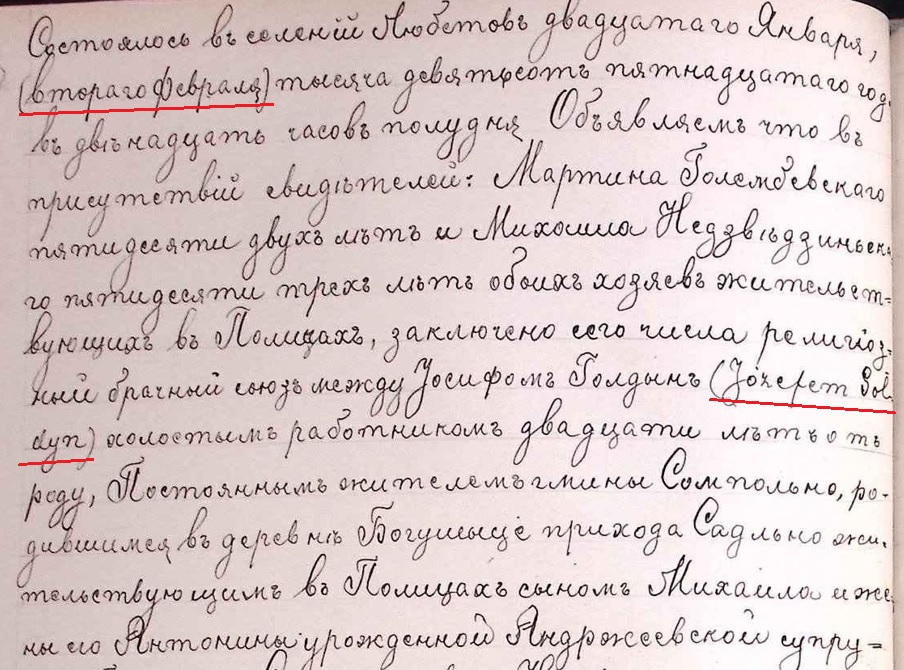 Состоялось въ селенiй Любстовъ двадцатаго Января,
(втораго февраля) тысяча девятьсотъ пятнадцатаго год
въ двѣнадцать часовъ полудня Объявляемъ что въ
присутствiй свидѣтелей: Мартина Голембевскаго
пятидесяти двухъ лѣтъ и Михаила Недзвѣдзиньска
го пятидесяти трехъ лѣтъ обоихъ хозяевъ жительст=
вующихъ въ Полицахъ, заключено сего числа религiоз=
ный брачный союзъ между Iосифомъ Голдынъ (Józefem Goł
dyn) холостымъ работникомъ двадцати лѣтъ отъ
роду, Постояннымъ жителемъ гмины Сомпольно, ро-
дившимся въ деревнѣ Богушыце прихода Садльно жи-
тельствующимъ въ Полицахъ сыномъ Михаила и же
ны его Антонины урожденной Андржеевской супру=